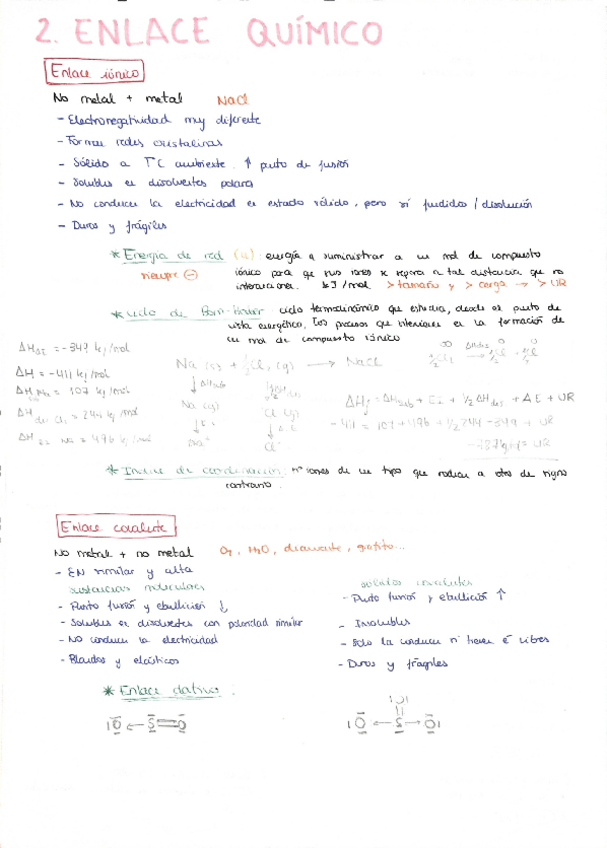 2. ENLACE QUÍMICO
Enlace iónico
No metal + metal NaCl
- Electronegatividad muy diferente
- Forman redes cristalinas
- Sólido a TªC ambiente. ↑ punto de fusión
- Solubles en disolventes polares
- No conducen la electricidad en estado sólido, pero sí fundidos / disolución
- Duros y frágiles
* Energía de red (U): energía a suministrar a un mol de compuesto
siempre ⊖ iónico para que sus iones se separen a tal distancia que no
interaccionen. kJ/mol > tamaño y > carga → > UR
* Ciclo de Born-Haber: ciclo termodinámico que estudia, desde el punto de
vista energético, los procesos que intervienen en la formación de
un mol de compuesto iónico
ΔH AE = -349 kj/mol
ΔH = -411 kj/mol
Na (s) + ½Cl₂ (g) → NaCl
ΔH Na = 107 kj/mol
↓ΔHsub
ΔH Cl₂ = 244 kj/mol
Na (g) Cl (g)
ΔHf = ΔHsub + EI + ½ ΔHdis + AE + UR
ΔH EI Na = 496 kj/mol
↓EI ↓A.E
-411 = 107 + 496 + ½ 244 - 349 + UR
Na⁺ Cl⁻
-787 kj/mol = UR
* Índice de coordinación: nº iones de un tipo que rodean a otro de signo
contrario.
Enlace covalente
No metal + no metal O₂, H₂O, diamante, grafito...
- EN similar y alta
sustancias moleculares sólidos covalentes
- Punto fusión y ebullición ↓ - Punto fusión y ebullición ↑
- Solubles en disolventes con polaridad similar - Insolubles
- No conducen la electricidad - Solo la conducen si tienen ē libres
- Blandos y elásticos - Duros y frágiles
* Enlace dativo:
|O| ← S = O
|O|
|O ← S → O|